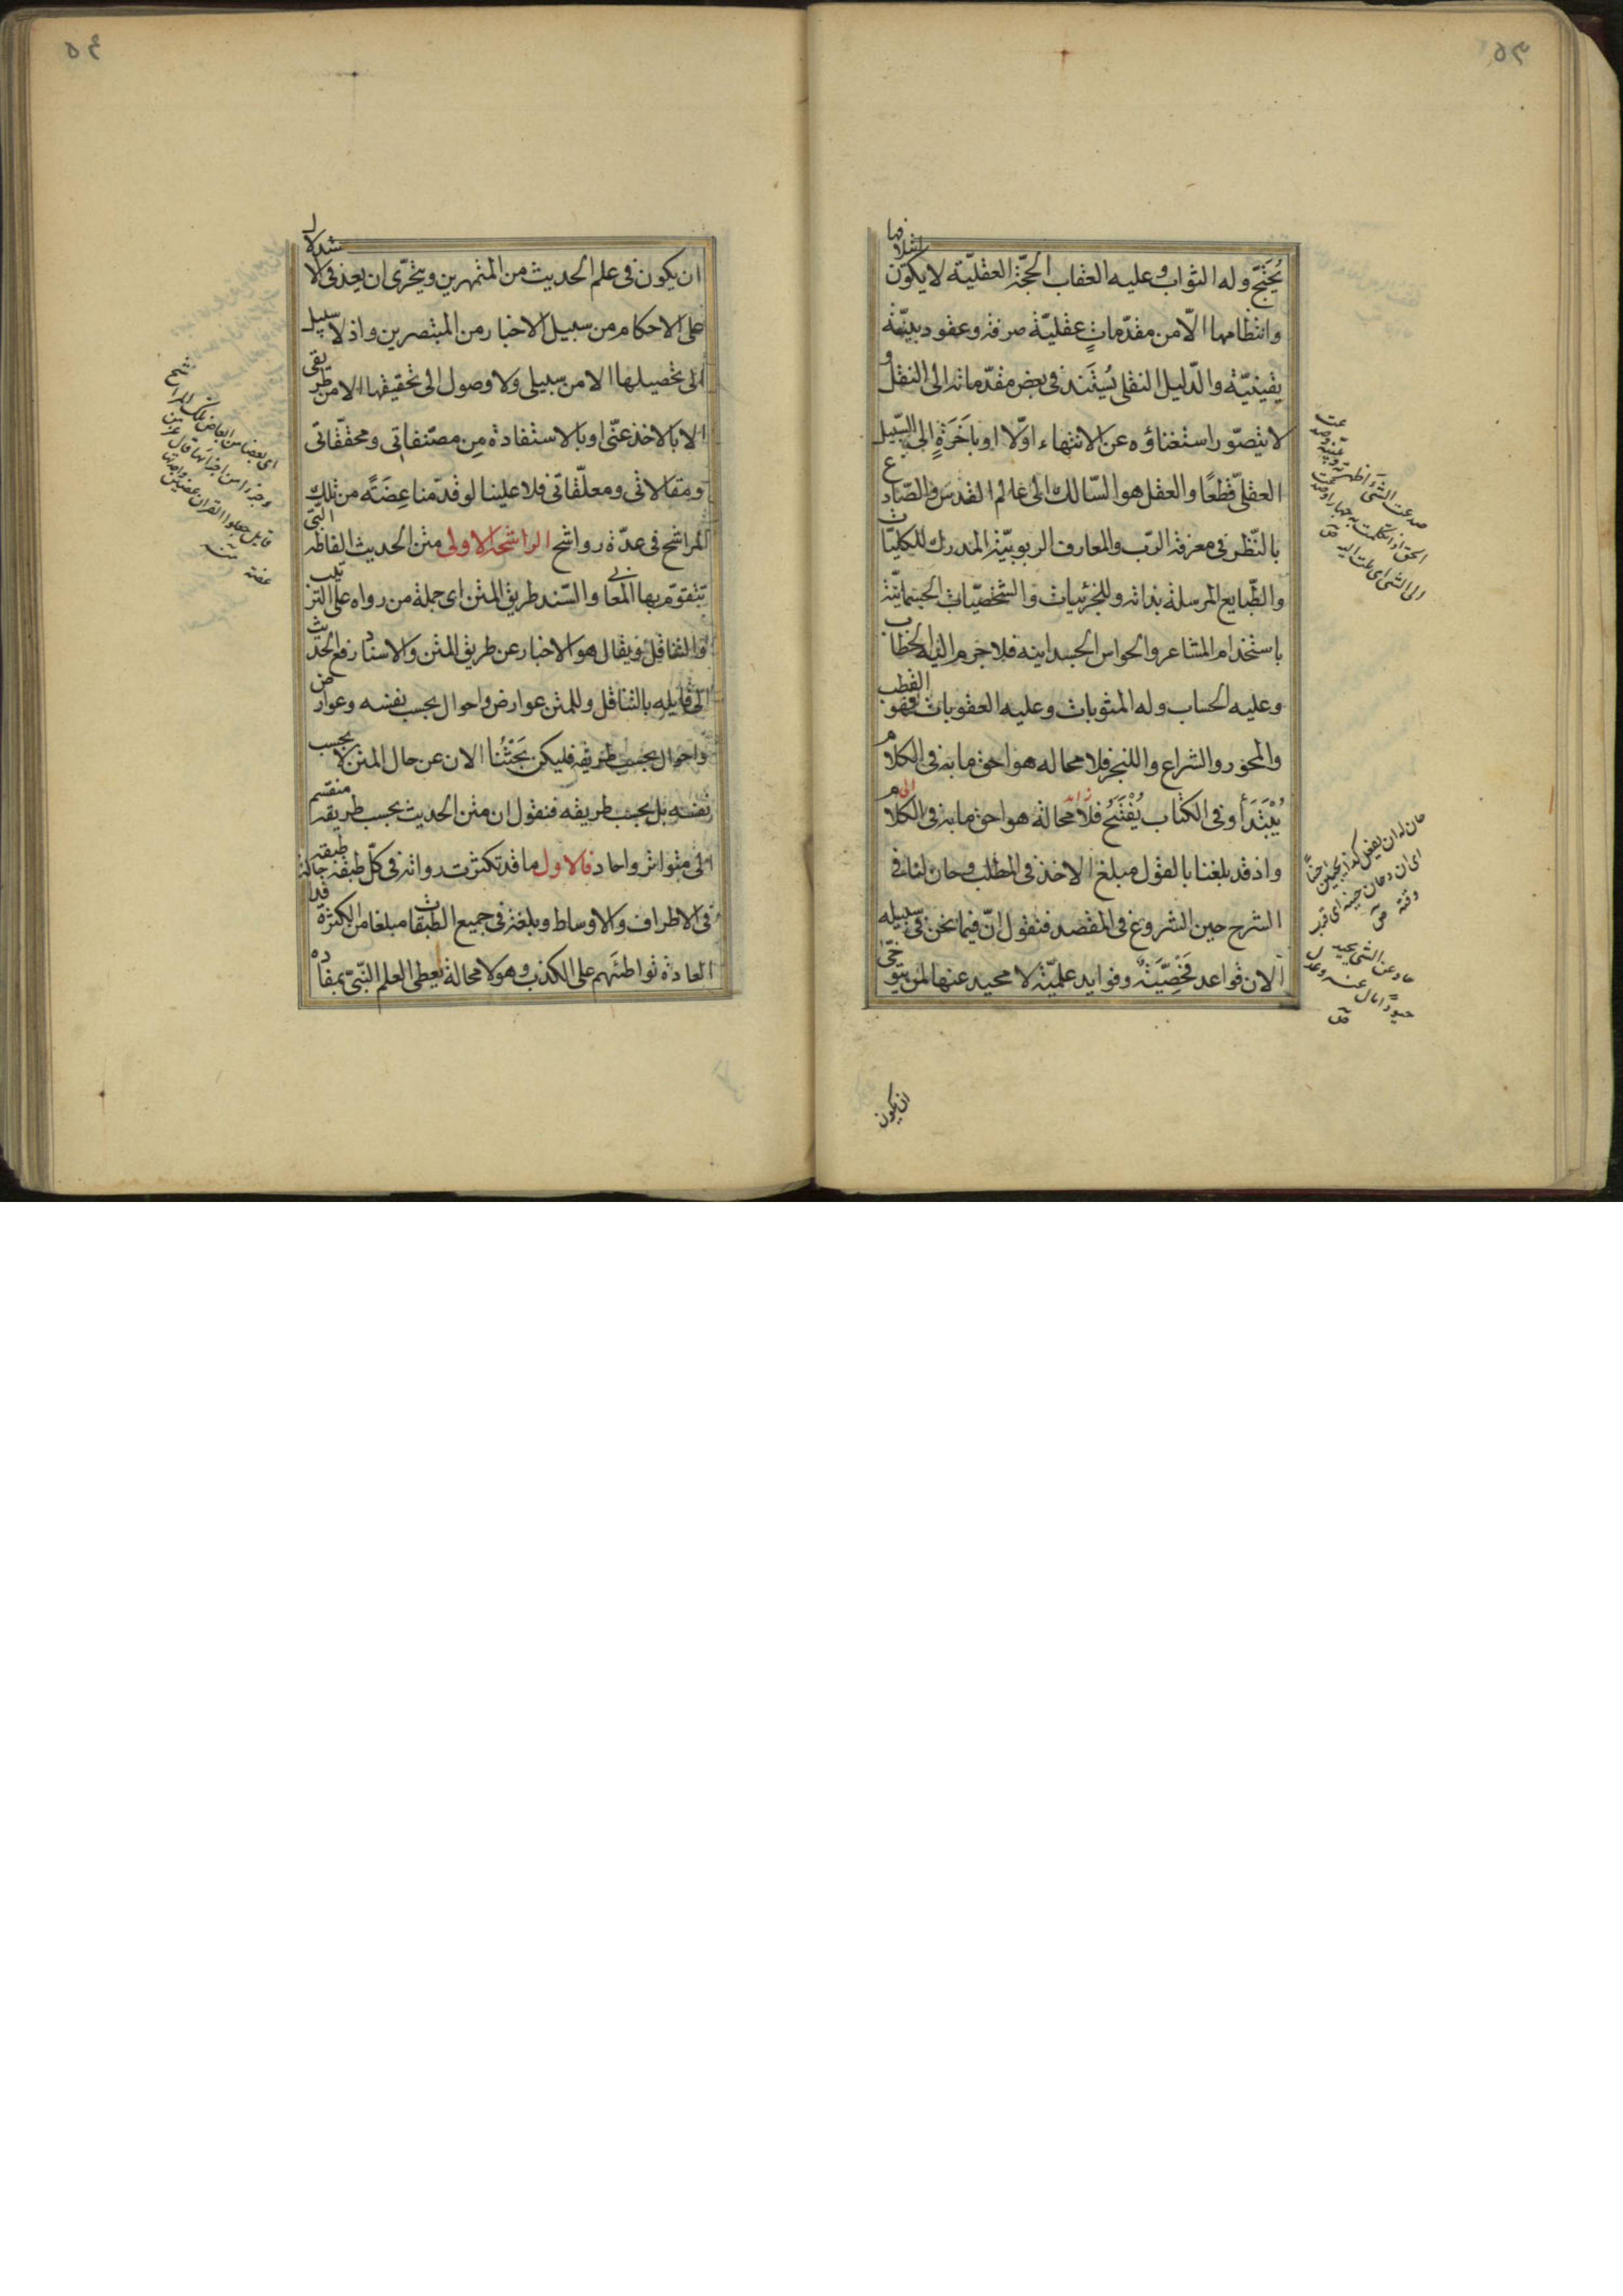 يُحْتَجّ وله الثواب وعليه العقاب الحجّة العقليّة لا يكون ائتلافها
وانتظامها الّا من مقدّماتٍ عقليّة صرفة وعقود بيّنة
يقينيّة والدّليل النقلى يُسْتَند فى بعض مقدّماته الى النقل و
لا يتصوّر استغناؤه عن الانتهاء اوّلا او باَخَرَةٍ الى السّبيل
العقلىّ قطعًا والعقل هو السّالك الى عالم القدس والصّادع
بالنّظر فى معرفة الرّب والمعارف الربوبيّة المدرك للكليّات
والطّبايع المرسلة بذاته وللجزئيات والشخصيّات الجسمانيّة
باستخدام المشاعر والحواس الجسدانيه فلا جرم اليه الخطاب
وعليه الحساب وله المثوبات وعليه العقوبات فهو القطب
والمحور والشراع واللنجر فلا محاله هو احق ما به فى الكلام
يُبْتَدَأ وفى الكتاب يُفْتَتَحُ فلا محالة هو احق ما به فى الكلام
واذ قد بلغنا بالقول مبلغ الاخذ فى المطلب وحان لنا فى
الشرح حين الشروع فى المقصد فنقول انّ فيما نحن فى سبيله
الان قواعد فَحْصِيَّةً وفوايد علميّة لا محيد عنها لمن يتوخّى
ان يكون
ان يكون فى علم الحديث من المتمهرين ويتحرّى ان يعد فى الاستدلال
على الاحكام من سبيل الاخبار من المتبصرين واذ لا سبيل
الى تحصيلها الا من سبيلى ولا وصول الى تحقيقها الا من طريقى
الا بالاخذ عنّى او بالاستفادة من مصنفاتى ومحققاتى
ومقالاتى ومعلّقاتى فلا علينا لو قدّمنا عِضَةً من تلك
المراشح فى عدّة رواشح الراشحة الاولى متن الحديث الفاظه التى
تتقوّم بها المعانى والسّند طريق المتن اى جملة من رواه على الترتيب
والتناقل ويقال هو الاخبار عن طريق المتن والاسناد رفع الحديث
الى قايله بالتناقل وللمتن عوارض واحوال بحسب نفسه وعوارض
واحوال بحسب طريقه فليكن بَحْثُنا الان عن حال المتن لا بحسب
نفسه بل بحسب طريقه فنقول ان متن الحديث بحسب طريقه منقسم
الى متواتر واحاد فالاول ما قد تكثرت رواته فى كلّ طبقة طبقة
فى الاطراف والاوساط وبلغت فى جميع الطبقات مبلغا من الكثرة قد
العادة تواطئهم على الكذب وهو لا محالة يعطى العلم البتّىّ بمفاده